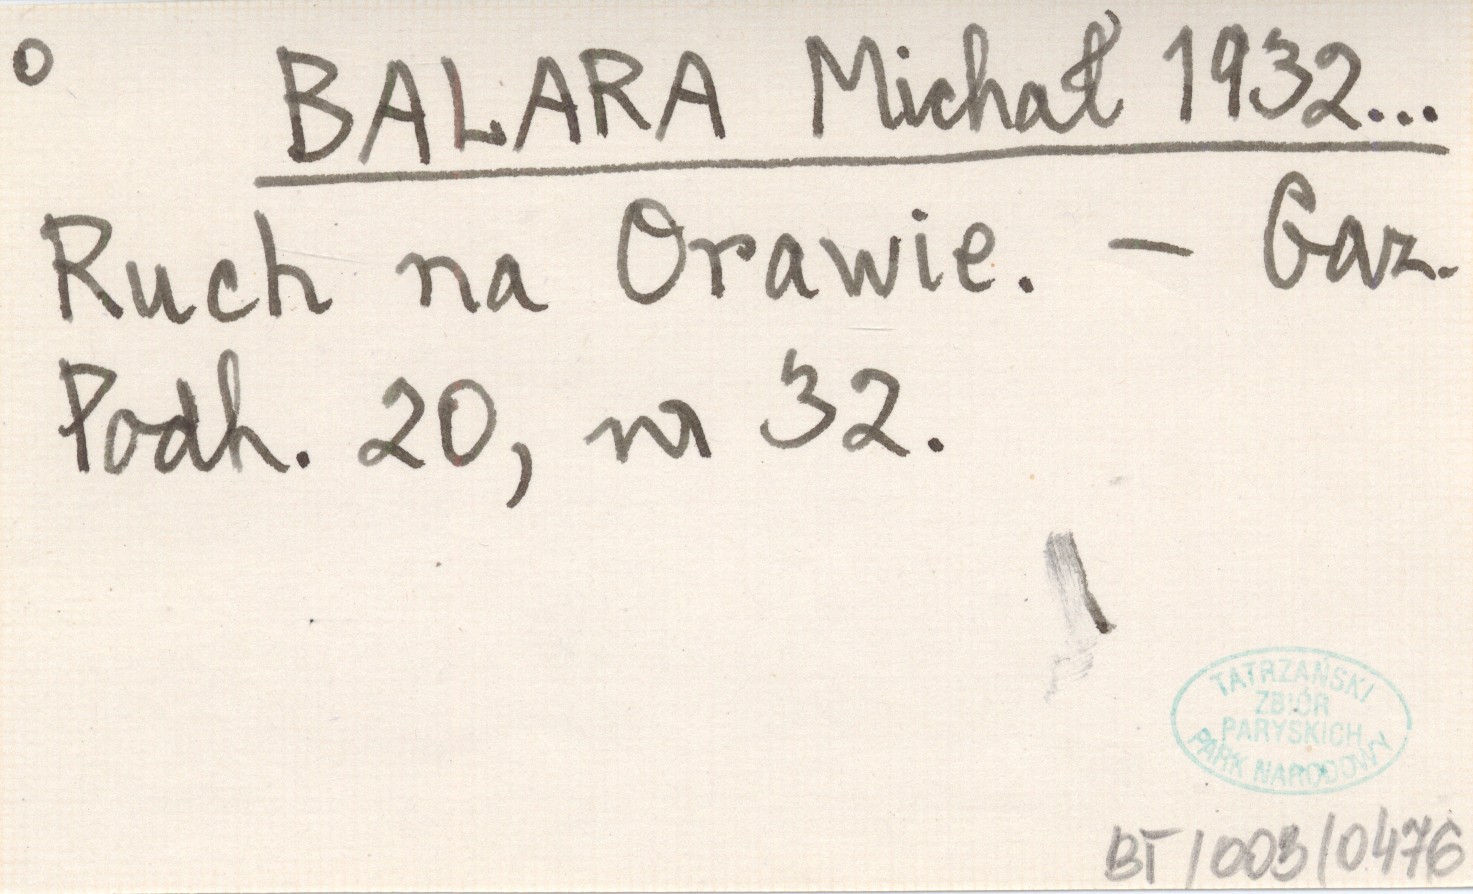 o BALARA Michał 1932...
Ruch na Orawie. – Gaz.
Podh. 20, nr 32.
TATRZAŃSKI
ZBIÓR
PARYSKICH
PARK NARODOWY
BT/003/0476